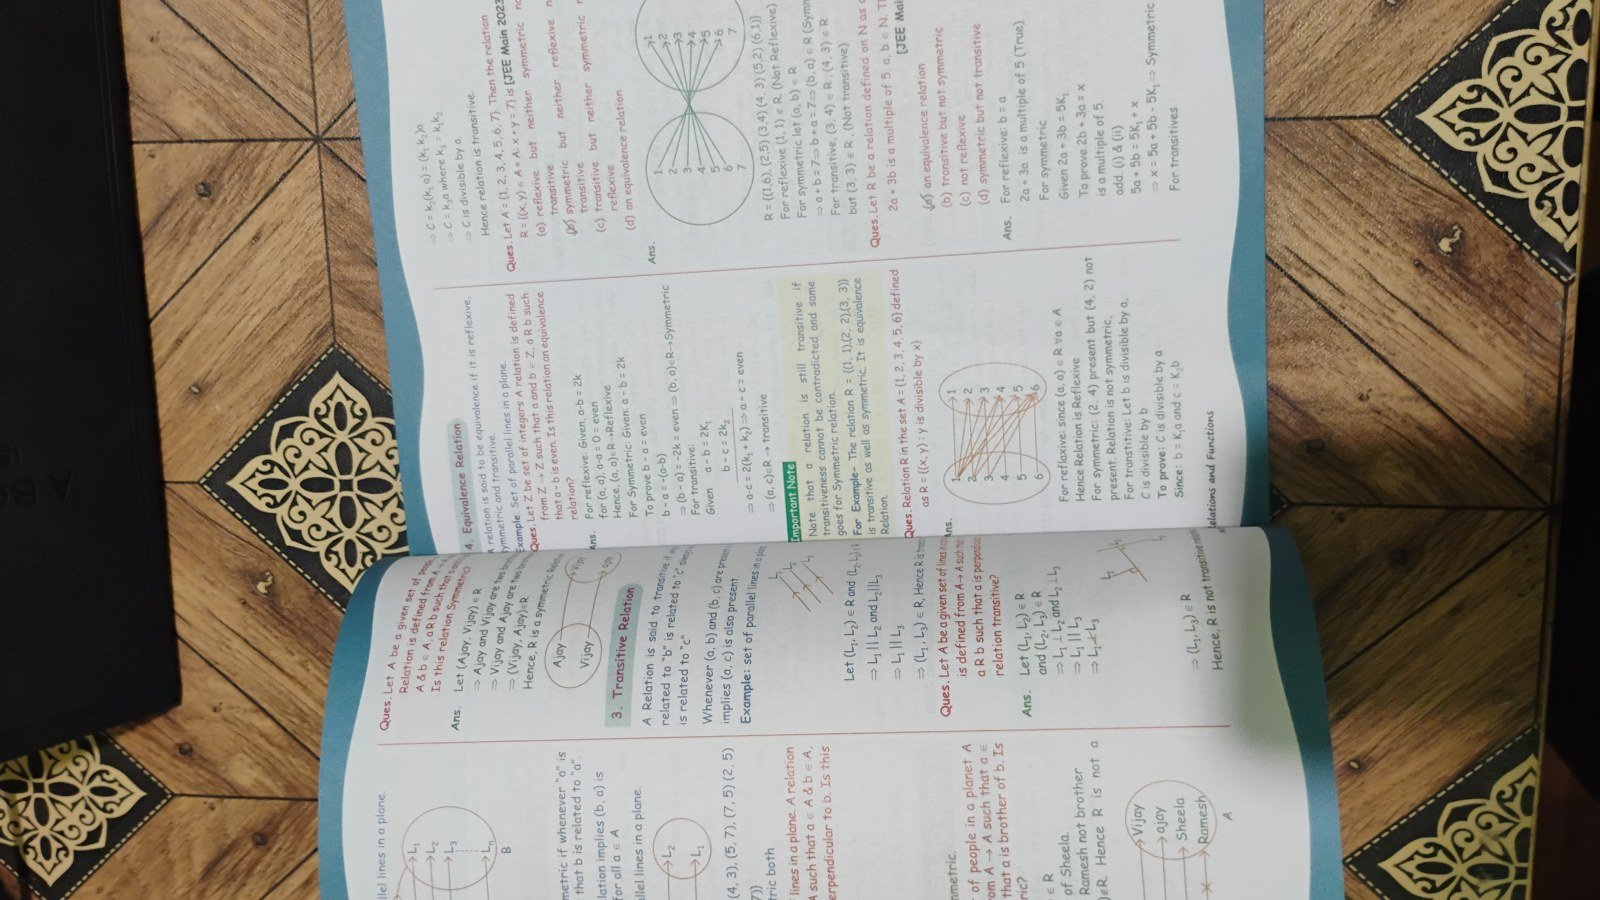 allel lines in a plane.
L₁
L₂
L₃
Lₙ
B
metric if whenever "a" is
that b is related to "a".
lation implies (b, a) is
for all a ∈ A
llel lines in a plane.
L₂
L₁
(4, 3), (5, 7), (7, 5) (2, 5)
7)}
tric both
lines in a plane. A relation
A such that a ∈ A & b ∈ A,
erpendicular to b. Is this
mmetric.
of people in a planet A
om A → A such that a ∈
that a is brother of b. Is
ric?
∈ R
of Sheela.
Ramesh not brother
)∉R. Hence R is not a
Vijay
ajay
Sheela
Ramesh
A
Ques. Let A be a given set of
Relation is defined from A
A & b ∈ A, a R b such that
Is this relation Symmetric?
Ans. Let (Ajay, Vijay) ∈ R
⇒ Ajay and Vijay are two
⇒ Vijay and Ajay are two
⇒ (Vijay, Ajay)∈R
Hence, R is a Symmetric
Ajay
Vijay
3. Transitive Relation
A Relation is said to transitive
related to "b" is related to "c"
is related to "c"
Whenever (a, b) and (b, c) are present
implies (a, c) is also present.
Example: set of parallel lines in a
L₁
L₂
L₃
Let (L₁, L₂) ∈ R and (L₂, L₃)
⇒ L₁ || L₂ and L₂||L₃
⇒ L₁ || L₃
⇒ (L₁, L₃) ∈ R, Hence R is
Ques. Let A be a given set of lines
is defined from A→A such
a R b such that a is
relation transitive?
Ans. Let (L₁, L₂) ∈ R
and (L₂, L₃) ∈ R
⇒ L₁ ⊥ L₂ and L₂ ⊥ L₃
⇒ L₁ || L₃
⇒ L₁⊥̸L₃
⇒ (L₁, L₃) ∈ R
Hence, R is not transitive
4. Equivalence Relation
A relation is said to be equivalence if it is reflexive,
symmetric and transitive
Example: Set of parallel lines in a plane.
Ques. Let Z be set of integers A relation is defined
from Z → Z such that a and b ∈ Z, a R b such
that a - b is even. Is this relation an equivalence
relation?
Ans. For reflexive: Given, a-b = 2k
for (a, a), a-a = 0 = even
Hence, (a, a)∈R→Reflexive
For Symmetric: Given: a - b = 2k
To prove b - a = even
b - a = -(a-b)
⇒ (b - a) = -2k = even ⇒ (b, a)∈R→Symmetric
For transitive:
Given a - b = 2K₁
b - c = 2k₂
⇒ a-c = 2(k₁ + k₂) ⇒ a - c = even
⇒ (a, c)∈R → transitive
Important Note
Note that a relation is still transitive if
transitiveness cannot be contradicted and same
goes for Symmetric relation.
For Example- The relation R = {(1, 1),(2, 2),(3, 3)}
is transitive as well as symmetric. It is equivalence
Relation.
Ques. Relation R in the set A = {1, 2, 3, 4, 5, 6} defined
as R = {(x, y) : y is divisible by x}
Ans.
1
2
3
4
5
6
1
2
3
4
5
6
For reflaxive: since (a, a) ∈ R ∀a ∈ A
Hence Relation is Reflexive
For symmetric: (2, 4) present but (4, 2) not
present. Relation is not symmetric.
For transtitive: Let b is divisible by a,
C is divisible by b
To prove: C is divisible by a
Since: b = K₁a and c = K₂b
Relations and Functions
⇒ C = k₂(k₁ a) = (k₁ k₂)a
⇒ C = k₃a where k₃ = k₁k₂
⇒ C is divisible by a.
Hence relation is transitive.
Ques. Let A = {1, 2, 3, 4, 5, 6, 7}. Then the relation
R = {(x, y) ∈ A × A; x + y = 7} is [JEE Main 2023
(a) reflexive but neither symmetric
transitive
(b) symmetric but neither reflexive
transitive
(c) transitive but neither symmetric
reflexive
(d) an equivalence relation
Ans.
1
2
3
4
5
6
7
1
2
3
4
5
6
7
R = {(1,6), (2,5) (3,4) (4, 3) (5,2) (6,1)}
For reflexive (1, 1) ∉ R. (Not Reflexive)
For symmetric let (a, b) ∈ R
⇒ a + b = 7 ⇒ b + a = 7 ⇒ (b, a) ∈ R
For transitive, (3, 4) ∈ R, (4, 3) ∈ R
but (3, 3) ∉ R, (Not transitive)
Ques. Let R be a relation defined on N as
2a + 3b is a multiple of 5, a, b ∈ N.
[JEE
(a) an equivalence relation
(b) transitive but not symmetric
(c) not reflexive
(d) symmetric but not transitive
Ans. For reflexive: b = a
2a + 3a is a multiple of 5 (True)
For symmetric
Given 2a + 3b = 5K₁
To prove 2b + 3a = x
is a multiple of 5.
add. (i) & (ii)
5a + 5b = 5K₁ + x
⇒ x = 5a + 5b - 5K₁ ⇒ Symmetric
For transitives